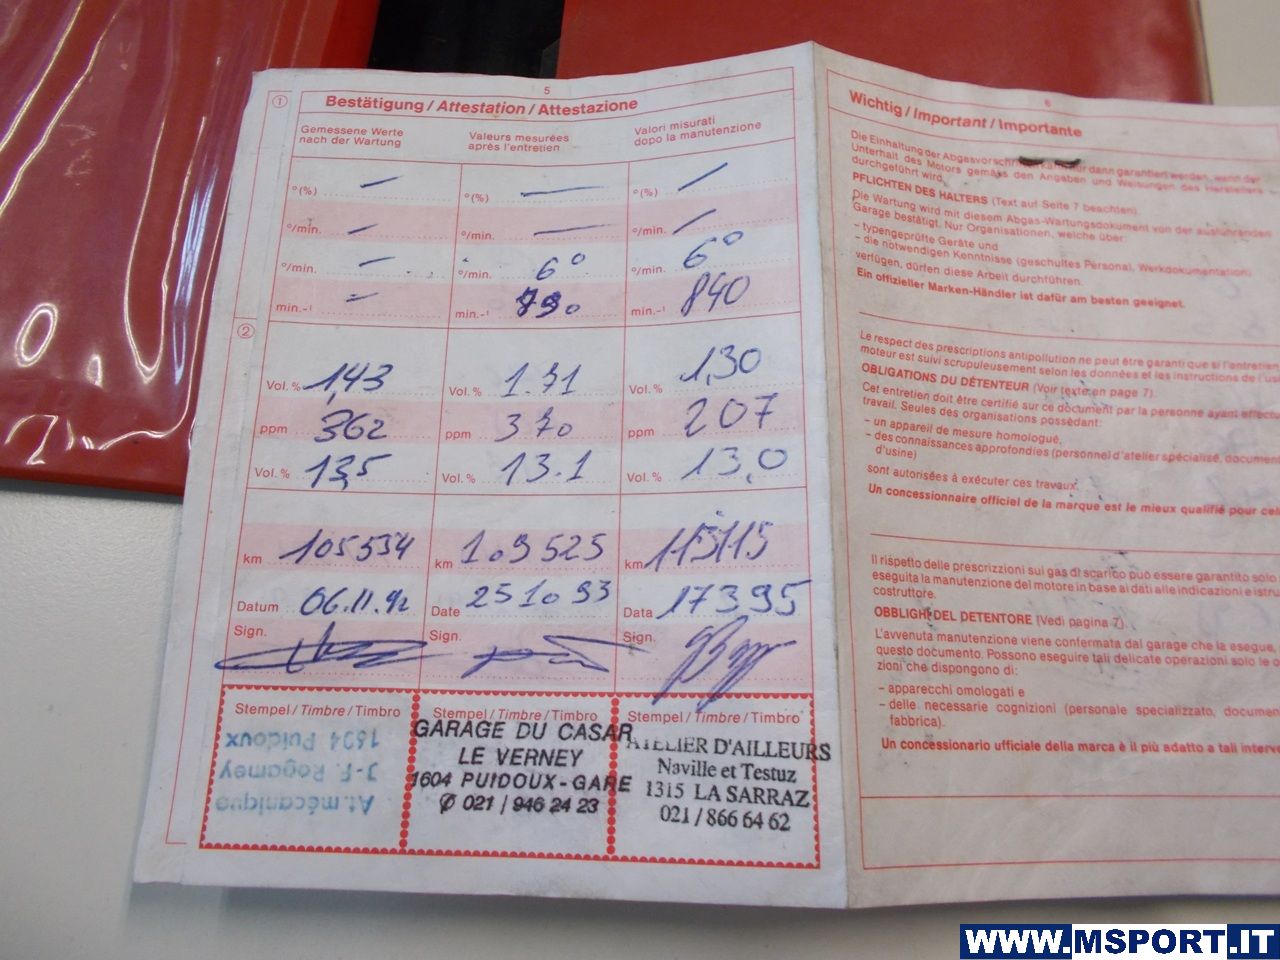 5
① Bestätigung / Attestation / Attestazione
Gemessene Werte
nach der Wartung
Valeurs mesurées
après l'entretien
Valori misurati
dopo la manutenzione
°(%) — °(%) — °(%) —
°/min. — °/min. — °/min. —
°/min. — °/min. 6° °/min. 6°
min.-¹ — min.-¹ 790 min.-¹ 840
②
Vol. % 1,43 Vol. % 1.31 Vol. % 1,30
ppm 362 ppm 370 ppm 207
Vol. % 13,5 Vol. % 13.1 Vol. % 13,0
km 105534 km 109525 km 115115
Datum 06.11.92 Date 251093 Data 17395
Sign. Sign. Sign.
Stempel / Timbre / Timbro Stempel / Timbre / Timbro Stempel / Timbre / Timbro
At. mécanique
J-F. Regamey
1604 Puidoux
GARAGE DU CASAR
LE VERNEY
1604 PUIDOUX-GARE
✆ 021 / 946 24 23
ATELIER D'AILLEURS
Naville et Testuz
1315 LA SARRAZ
021 / 866 64 62
6
Wichtig / Important / Importante
Die Einhaltung der Abgasvorschriften kann nur dann garantiert werden, wenn der
Unterhalt des Motors gemäss den Angaben und Weisungen des Herstellers
durchgeführt wird.
PFLICHTEN DES HALTERS (Text auf Seite 7 beachten)
Die Wartung wird mit diesem Abgas-Wartungsdokument von der ausführenden
Garage bestätigt. Nur Organisationen, welche über:
– typengeprüfte Geräte und
– die notwendigen Kenntnisse (geschultes Personal, Werkdokumentation)
verfügen, dürfen diese Arbeit durchführen.
Ein offizieller Marken-Händler ist dafür am besten geeignet.
Le respect des prescriptions antipollution ne peut être garanti que si l'entretien
moteur est suivi scrupuleusement selon les données et les instructions de l'us
OBLIGATIONS DU DÉTENTEUR (Voir texte en page 7).
Cet entretien doit être certifié sur ce document par la personne ayant effect
travail. Seules des organisations possédant:
– un appareil de mesure homologué,
– des connaissances approfondies (personnel d'atelier spécialisé, document
d'usine)
sont autorisées à exécuter ces travaux.
Un concessionnaire officiel de la marque est le mieux qualifié pour cel
Il rispetto delle prescrizioni sui gas di scarico può essere garantito solo
eseguita la manutenzione del motore in base ai dati alle indicazioni e istru
costruttore.
OBBLIGHI DEL DETENTORE (Vedi pagina 7).
L'avvenuta manutenzione viene confermata dal garage che la esegue,
questo documento. Possono eseguire tali delicate operazioni solo le o
zioni che dispongono di:
– apparecchi omologati e
– delle necessarie cognizioni (personale specializzato, documen
fabbrica).
Un concessionario ufficiale della marca è il più adatto a tali interve
WWW.MSPORT.IT